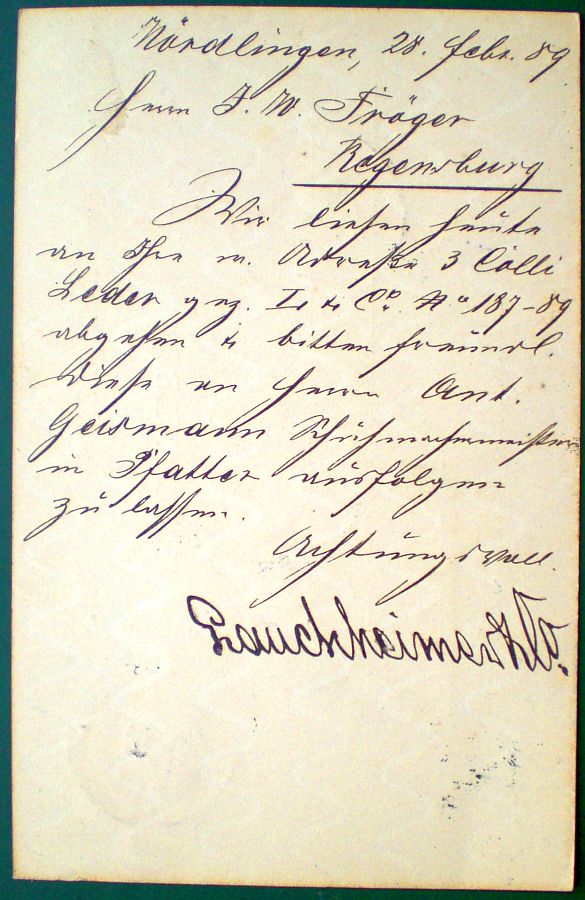 Nördlingen, 28. Febr. 89
Herrn J. W. Tröger
Regensburg
Wir ließen heute
an Ihre w. Adreße 3 Colli
Leder gez. L & Co. No 187-89
abgehen & bitten freundl.
diese an Herrn Ant.
Geismann Schuhmachermeister
in Pfatter ausfolgen
zu lassen.
Achtungsvoll
Lauchheimer & Co.